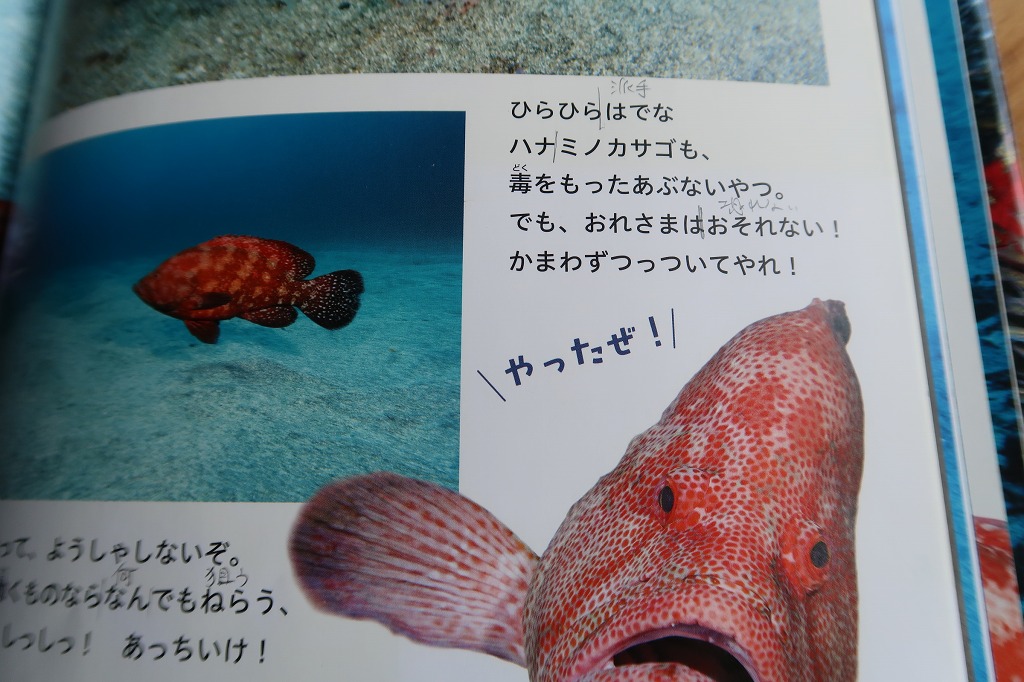 派手
ひらひらはでな
ハナミノカサゴも、
どく
毒をもったあぶないやつ。
恐れない
でも、おれさまはおそれない！
かまわずつっついてやれ！
やったぜ！
って、ようしゃしないぞ。
何 狙う
くものならなんでもねらう、
しっしっ！ あっちいけ！